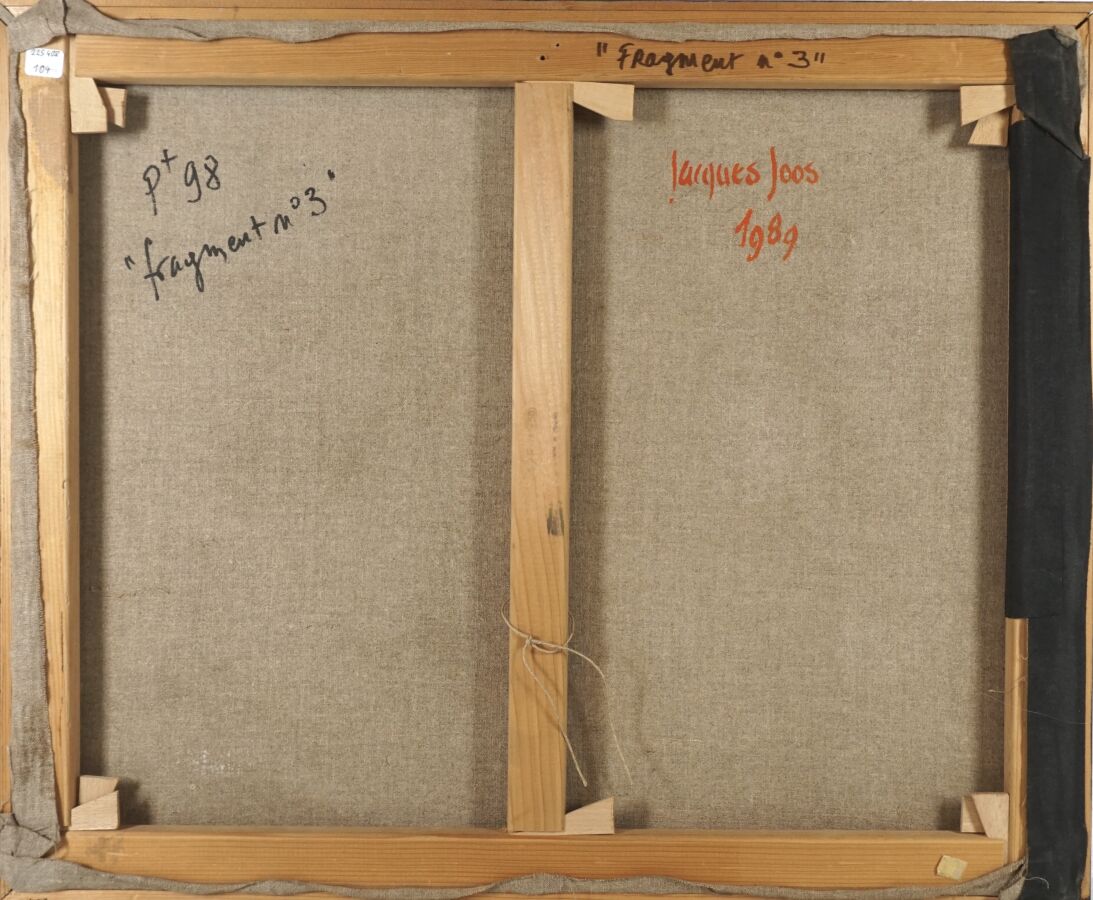 "Fragment n° 3"
104
P+ 98
"fragment n° 3"
Jacques Joos
1989